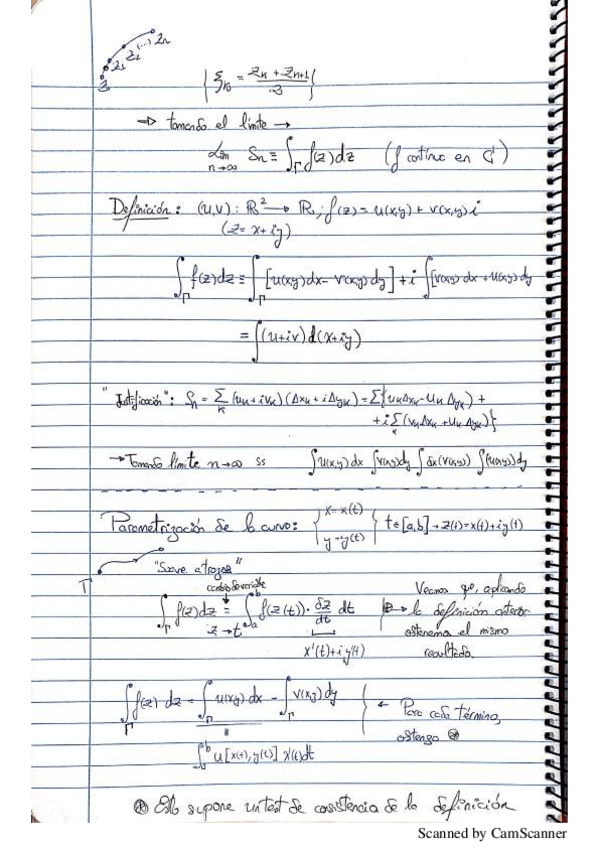 z₀ z₁ z₂ (...) zₙ
{ ξₖ = (zₙ + zₙ₊₁)/2 }
⇒ tomando el límite →
Lim n→∞ Sₙ ≡ ∫_Γ f(z)dz (f continua en ℂ)
Definición: (u,v): ℝ² → ℝ; f(z) = u(x,y) + v(x,y)i
(z = x+iy)
∫_Γ f(z)dz ≡ ∫_Γ [u(x,y)dx - v(x,y)dy] + i ∫[v(x,y)dx + u(x,y)dy
= ∫(u+iv)d(x+iy)
"Justificación": Sₙ = Σₖ (uₖ+ivₖ)(Δxₖ+iΔyₖ) = Σ{uₖΔxₖ-vₖΔyₖ) +
+i Σₖ (vₖΔxₖ + uₖΔyₖ)}
→ Tomando límite n→∞ ∫u(x,y)dx ∫v(x,y)dy ∫dx(v(x,y)) ∫(u(x,y))dy
Parametrización de la curva: { x=x(t) y=y(t) } t∈[a,b] → z(t)=x(t)+iy(t)
"Suave a trozos"
Γ
cambio de variable
∫_Γ f(z)dz ≡ ∫_a^b f(z(t))· δz/dt dt
z→t
x'(t)+iy'(t)
Veamos que, aplicando
la definición anterior
obtenemos el mismo
resultado.
∫_Γ f(z) dz = ∫_Γ u(x,y)dx - ∫_Γ v(x,y)dy
← Para cada término,
obtengo ⊛
∫_a^b u[x(t),y(t)] x'(t)dt
⊛ Esto supone un test de consistencia de la definición
Scanned by CamScanner